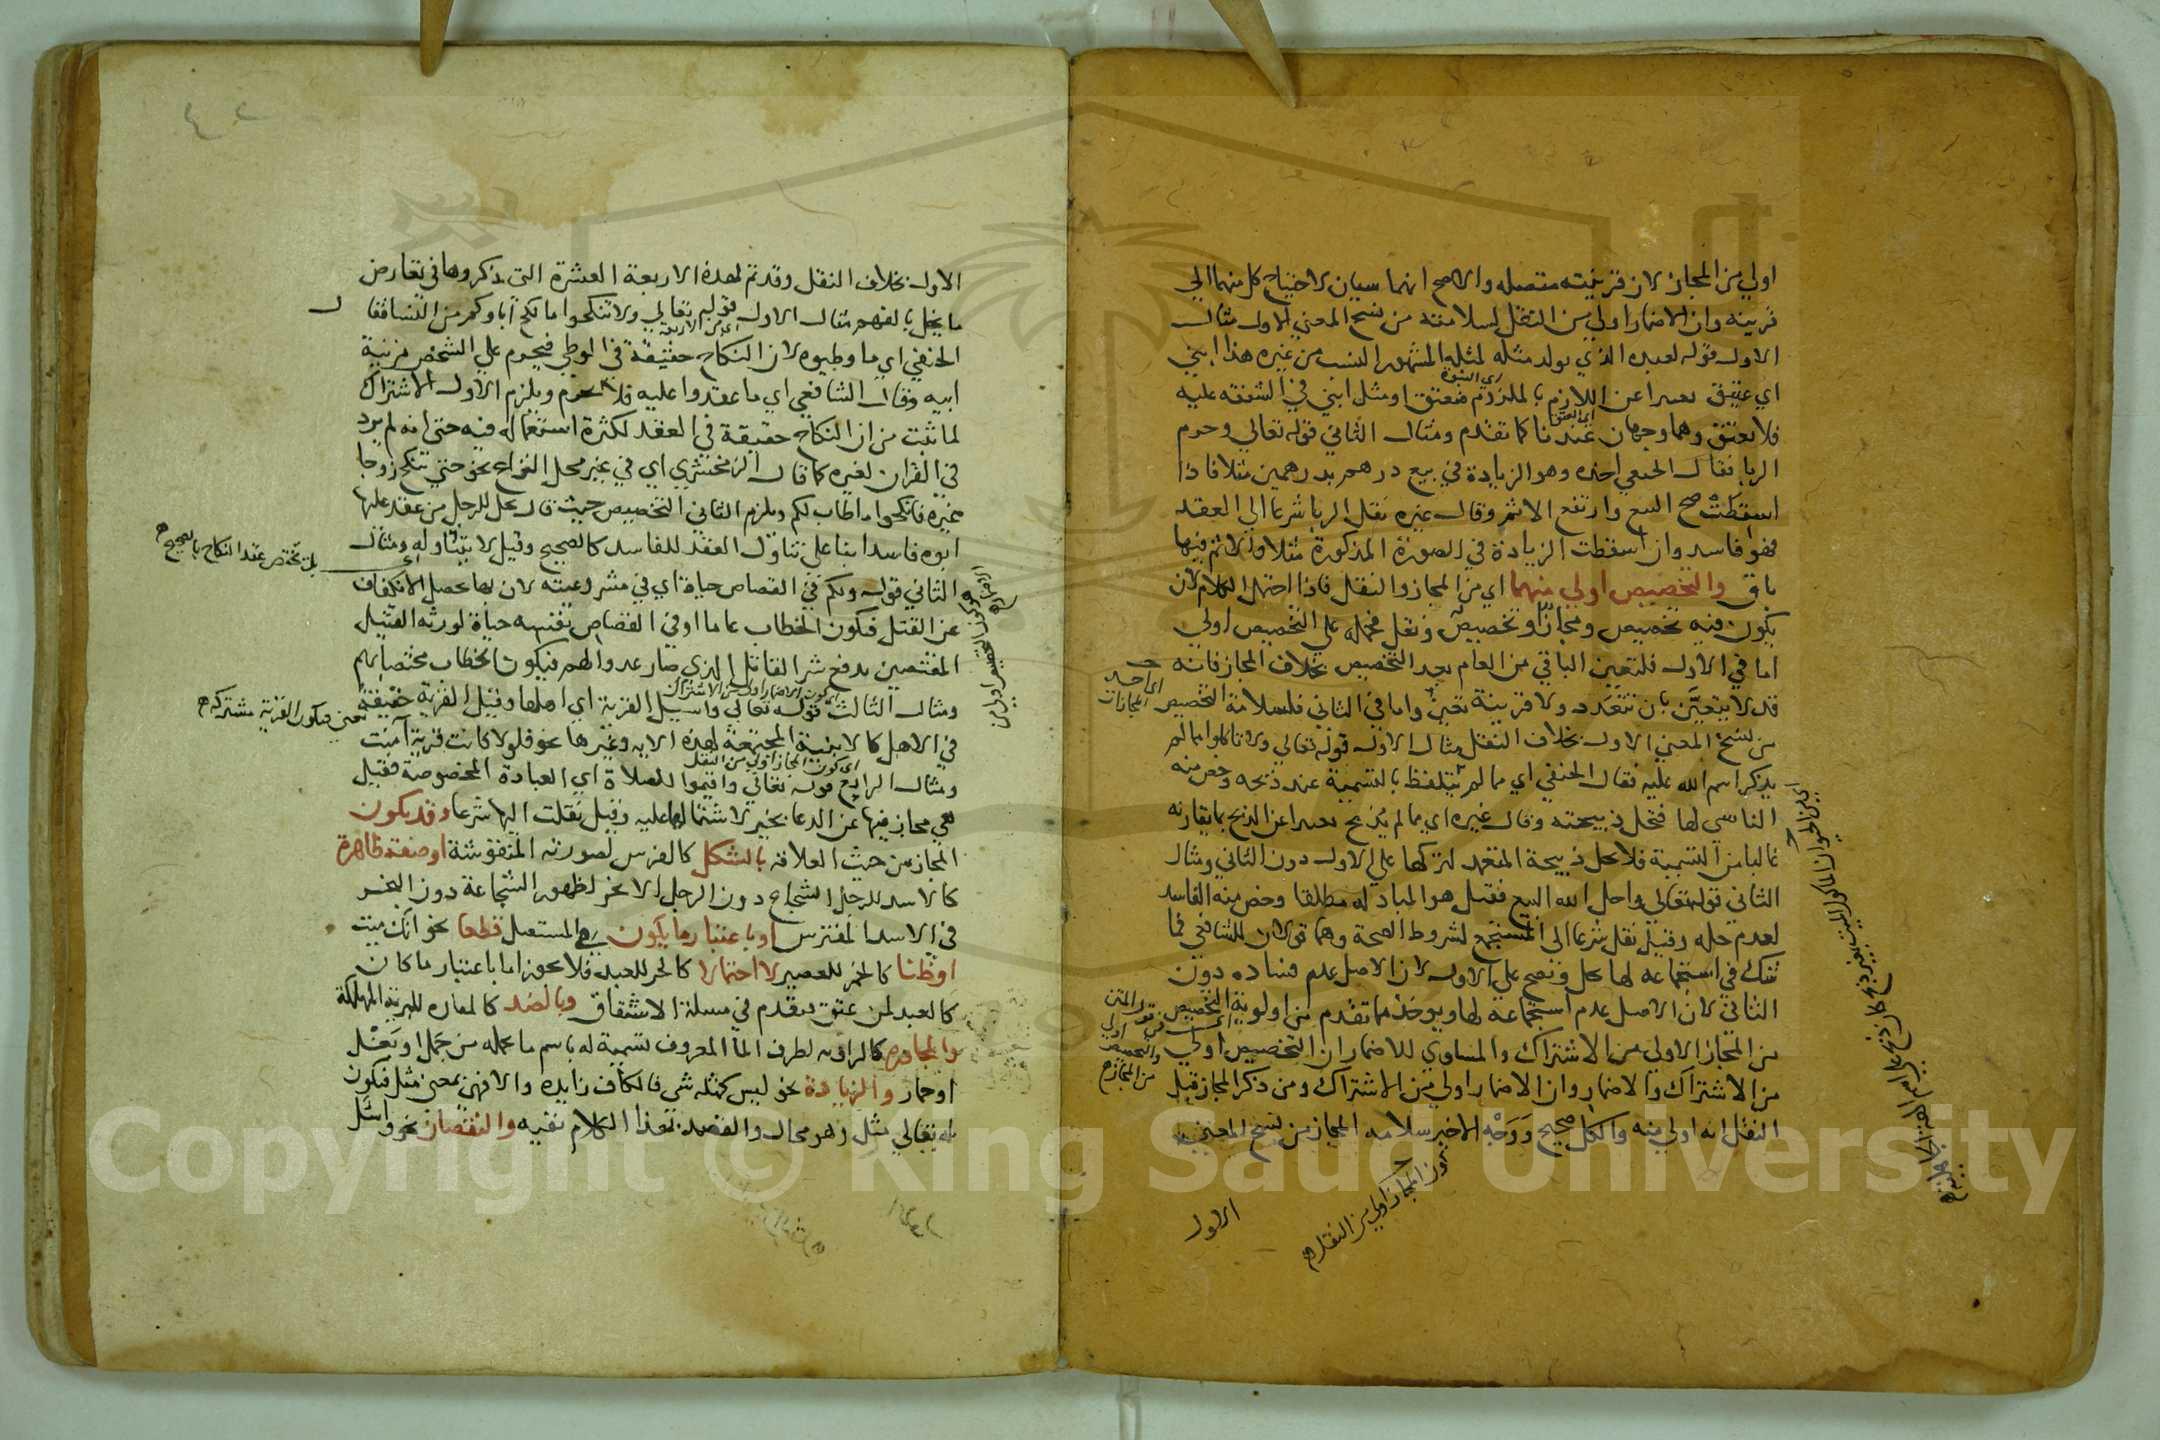 اولي من المجاز لان قرينته متصله والاصح انهما سيان لاحتياج كل منهما الي
قرينه وان الاضمار اولي من النقل لسلامته من نسخ المعني الاول مثال
الاول قوله لعبده الذي يولد مثله لمثله المشهور النسب من غيره هذا ابني
اي عتيق تعبيرا عن اللازم بالملزوم فيعتق او مثل ابني في الشفقه عليه
اي البنوة
فلا يعتق وهما وجهان عندنا كما تقدم ومثال الثاني قوله تعالي وحرم
اي العتق
الربا فقال الحنفي اخذه وهو الزيادة في بيع درهم بدرهمين مثلا فاذا
اسقطت صح البيع وارتفع الاثم وقال غيره نقل الربا شرعا الي العقد
فهو فاسد وان اسقطت الزيادة في الصورة المذكورة مثلا والاثم فيها
باق والتخصيص اولي منهما اي من المجاز والنقل فاذا احتمل الكلام لان
يكون فيه تخصيص ومجاز او تخصيص ونقل فحمله علي التخصيص اولي
اما في الاول فلتعين الباقي من العام بعد التخصيص بخلاف المجاز فانه
قد لا يتعين بان يتعدد ولا قرينة تعين واما في الثاني فلسلامة التخصيص
اي احد المجازات
من نسخ المعني الاول بخلاف النقل مثال الاول قوله تعالي ولا تاكلوا مما لم
يذكر اسم الله عليه فقال الحنفي اي مما لم يتلفظ بالتسمية عند ذبحه وخص منه
الناسي لها فتحل ذبيحته وقال غيره اي مما لم يذبح تعبيرا عن الذبح بما يقارنه
غالبا من التسمية فلا تحل ذبيحة المتعمد لتركها علي الاول دون الثاني ومثال
الثاني قوله تعالي واحل الله البيع فقيل هو المبادله مطلقا وخص منه الفاسد
لعدم حله وقيل نقل شرعا الي المستجمع لشروط الصحة وهما قولان للشافعي فما
شك في استجماعه لها يحل ويصح علي الاول لان الاصل عدم فساده دون
الثاني لان الاصل عدم استجماعه لها ويوخذ مما تقدم من اولوية التخصيص
من المجاز الاولي من الاشتراك والمساوي للاضمار ان التخصيص اولي
من الاشتراك والاضمار وان الاضمار اولي من الاشتراك ومن ذكر المجاز قبل
النقل انه اولي منه والكل صحيح ووجه الاخير سلامه المجاز من نسخ المعني
كون المجاز اولي من النقل
الاول
الاول بخلاف النقل وقد تم لهذه الاربعة العشرة التي ذكروها في تعارض
ما يخل بالفهم مثال الاول قوله تعالي ولا تنكحوا ما نكح اباوكم من النسا فقال
الحنفي اي ما وطيوه لان النكاح حقيقة في الوطي فيحرم علي الشخص مزنية
ابيه وقال الشافعي اي ما عقدوا عليه فلا تحرم ويلزم الاول الاشتراك
لما ثبت من ان النكاح حقيقة في العقد لكثرة استعماله فيه حتي انه لم يرد
في القران لغيره كما قال الزمخشري اي في غير محل النزاع نحو حتي تنكح زوجا
غيره فانكحوا ما طاب لكم ويلزم الثاني التخصيص حيث قال يحل للرجل من عقد عليها
ابوه فاسدا بنا علي تناول العقد للفاسد كالصحيح وقيل لا يتناوله ومثال
بل يختص عقد النكاح بالصحيح
الثاني قوله ولكم في القصاص حياة اي في مشروعيته لان بها يحصل الانكفاف
عن القتل فيكون الخطاب عاما او في القصاص نفسه حياة لورثه القتيل
المقتصين بدفع شر القاتل الذي صار عدوا لهم فيكون الخطاب مختصا بهم
اي كون الاضمار اولي من الاشتراك
ومثال الثالث قوله تعالي واسيل القرية اي اهلها وقيل القرية حقيقة
في الاهل كالابنية المجتمعة لهذه الايه وغيرها نحو فلولا كانت قرية آمنت
اي كون المجاز اولي من النقل
ومثال الرابع قوله تعالي واقيموا الصلاة اي العبادة المخصوصة فقيل
هي مجاز فيها عن الدعا بخير لاشتمالها عليه وقيل نقلت اليها شرعا وقد يكون
المجاز من حيث العلاقة بالشكل كالفرس لصورته المنقوشة او صفة ظاهرة
كالاسد للرجل الشجاع دون الرجل الابخر لظهور الشجاعة دون البخر
في الاسد المفترس او باعتبار ما يكون في المستقبل قطعا نحو انك ميت
او ظنا كالخمر للعصير لا احتمالا كالحر للعبد فلا يجوز اما باعتبار ما كان
كالعبد لمن عتق فتقدم في مسلة الاشتقاق وبالضد كالمفازه للبرية المهلكة
والمجاوره كالراويه لظرف الما المعروف تسمية له باسم ما يحمله من جمل او بغل
او حمار والزيادة نحو ليس كمثله شي فالكاف زايده والا فهي بمعني مثل فيكون
له تعالي مثل وهو محال والقصد بهذا الكلام نفيه والنقصان نحو واسئل